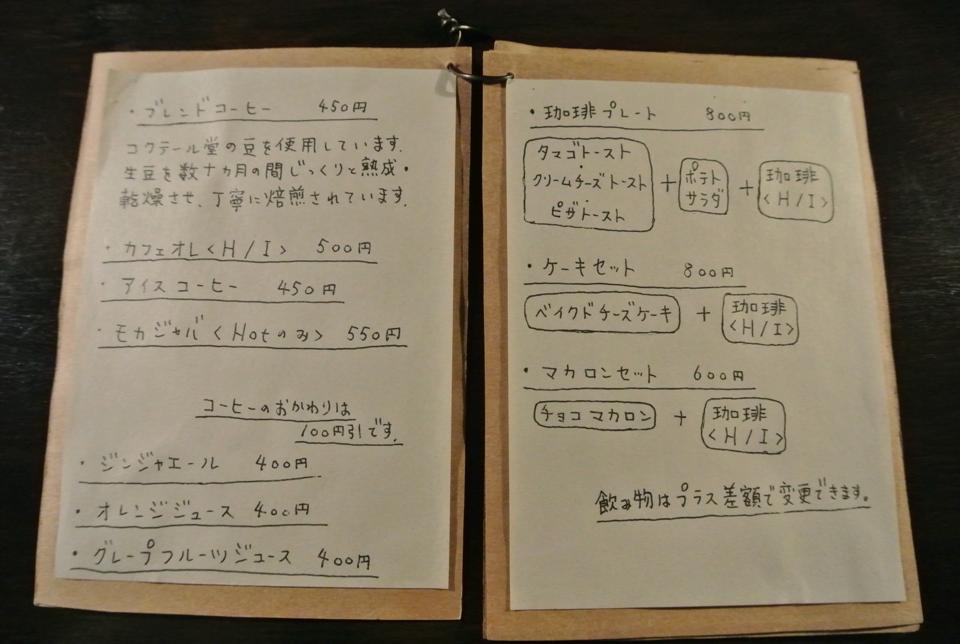 ・ブレンドコーヒー 450円
コクテール堂の豆を使用しています.
生豆を数十カ月の間じっくりと熟成・
乾燥させ、丁寧に焙煎されています.
・カフェオレ<H/I> 500円
・アイスコーヒー 450円
・モカジャバ<Hotのみ> 550円
コーヒーのおかわりは
100円引です.
・ジンジャエール 400円
・オレンジジュース 400円
・グレープフルーツジュース 400円
・珈琲プレート 800円
タマゴトースト
・
クリームチーズトースト
・
ピザトースト
+
ポテト
サラダ
+
珈琲
<H/I>
・ケーキセット 800円
ベイクドチーズケーキ + 珈琲
<H/I>
・マカロンセット 600円
チョコマカロン + 珈琲
<H/I>
飲み物はプラス差額で変更できます。